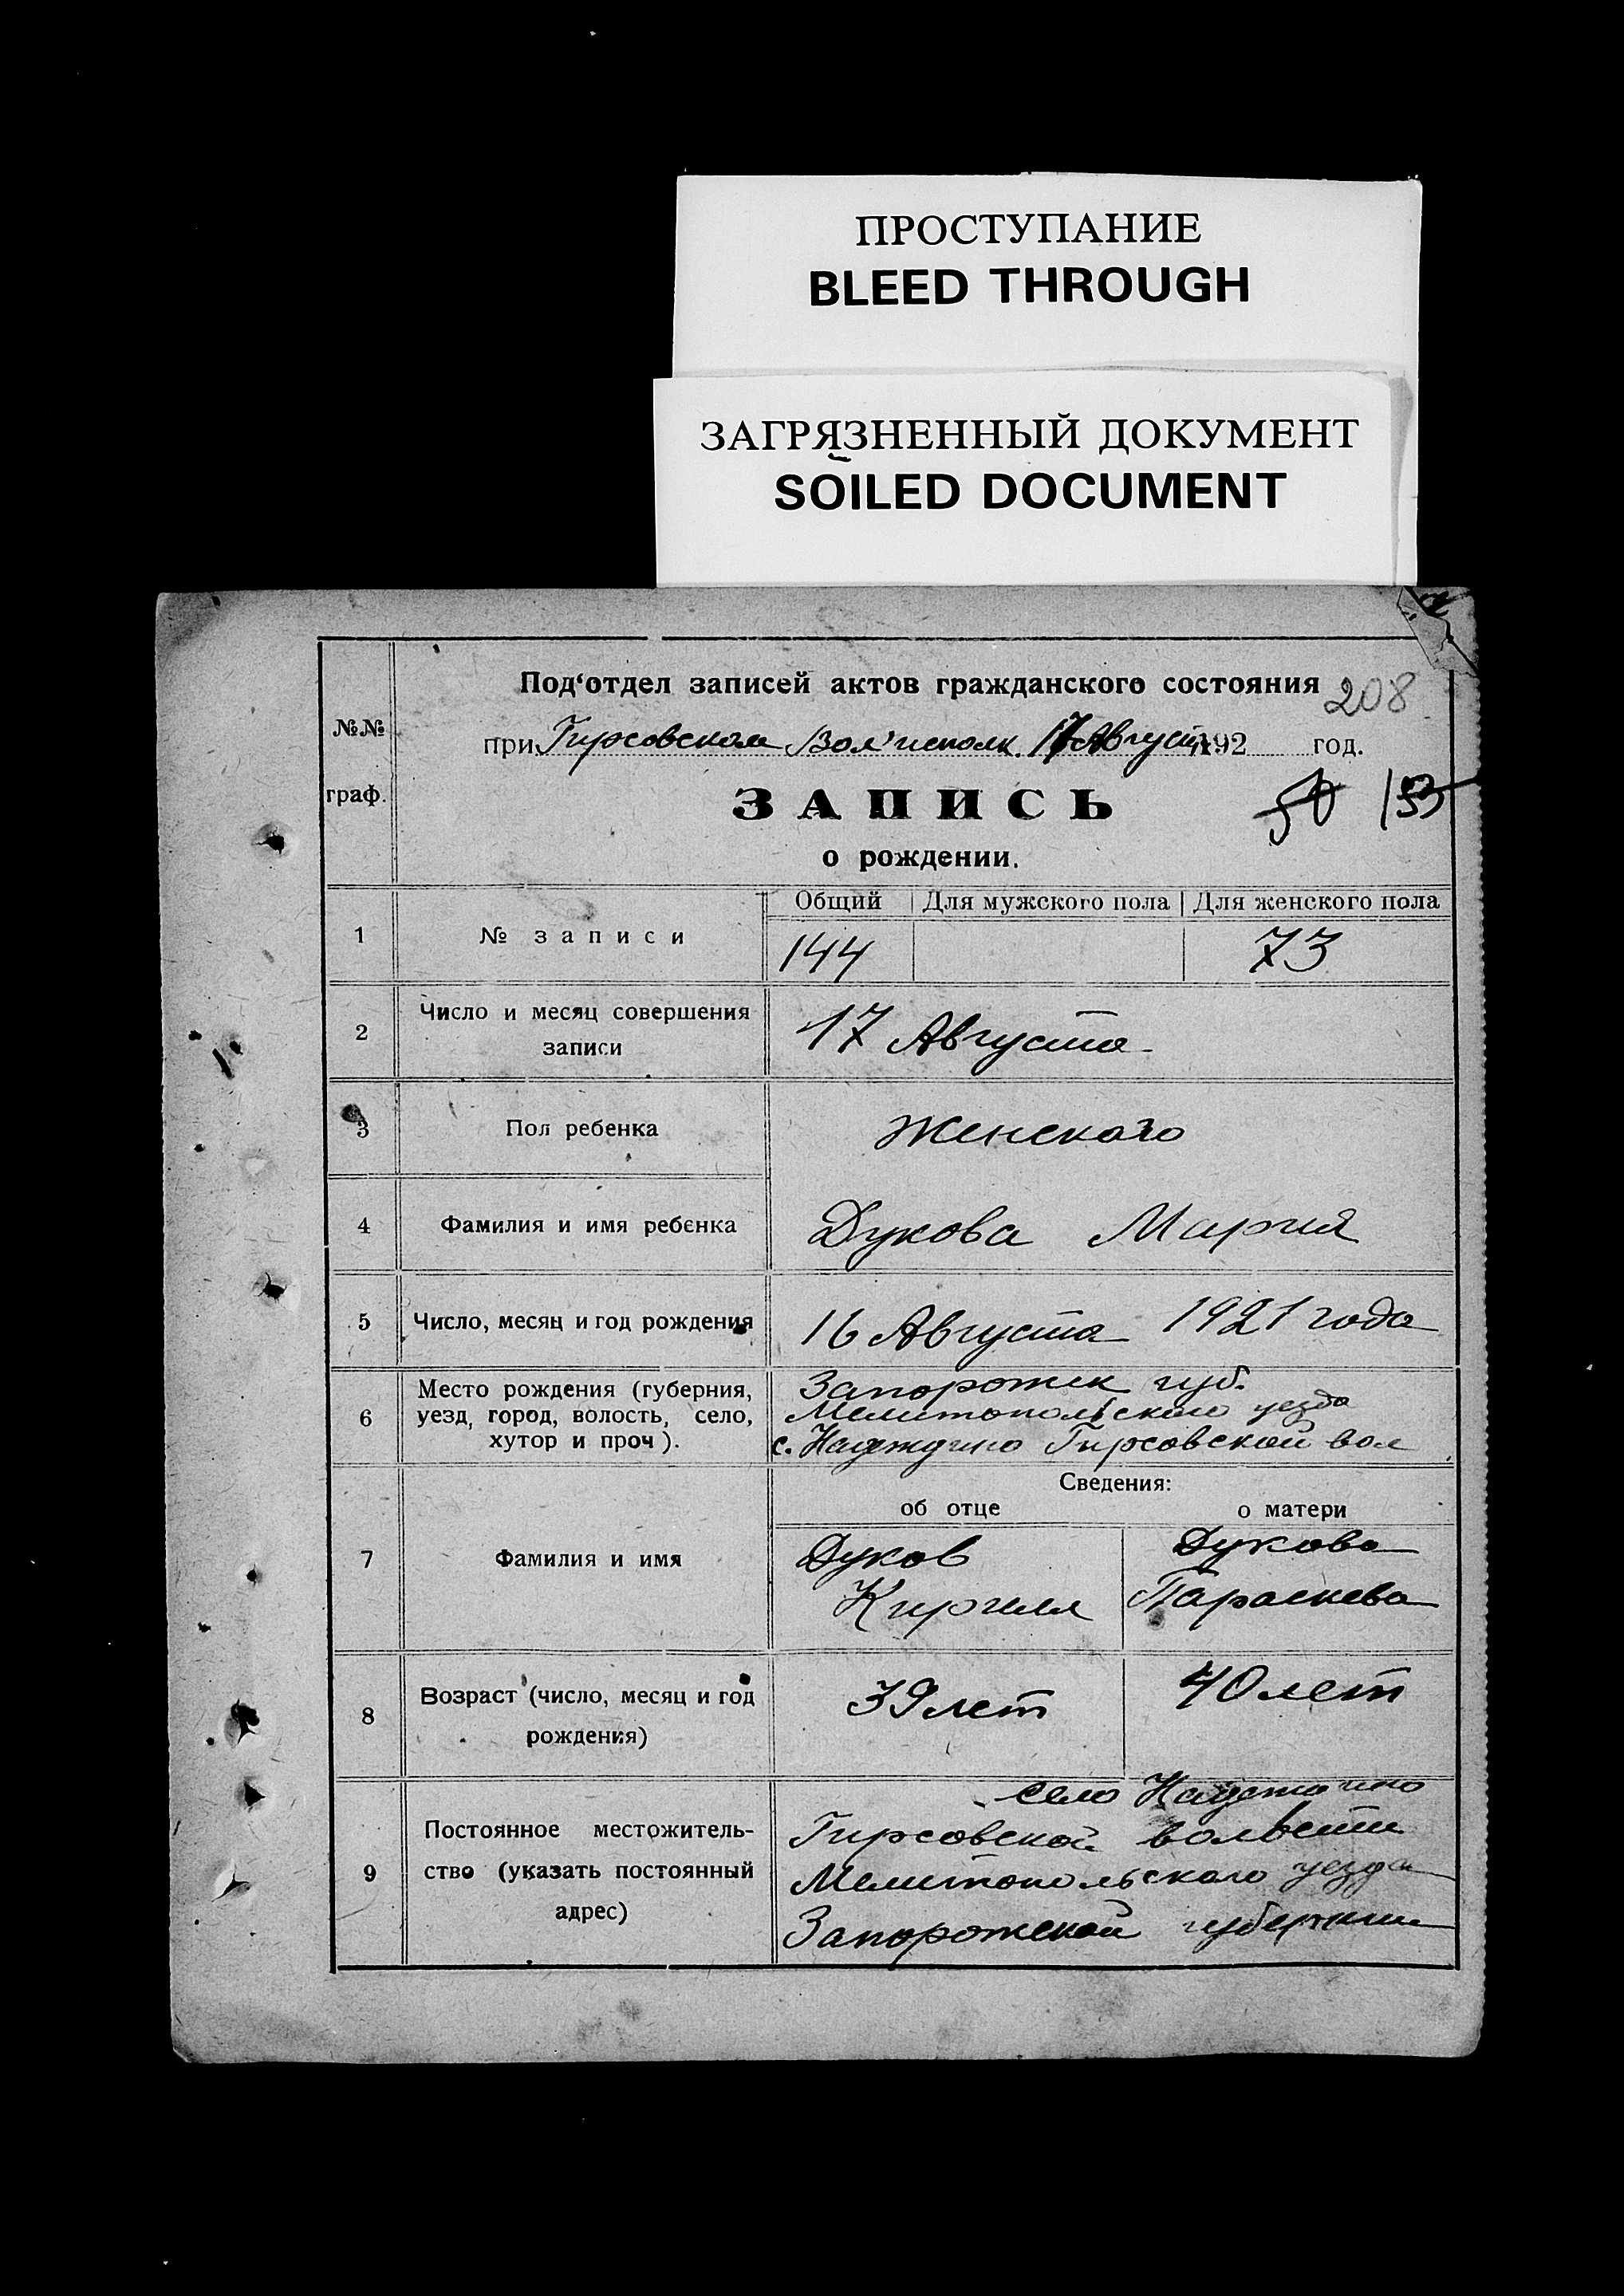 ПРОСТУПАНИЕ
BLEED THROUGH
ЗАГРЯЗНЕННЫЙ ДОКУМЕНТ
SOILED DOCUMENT
№№
граф.
Под‘отдел записей актов гражданского состояния
208
при Гирсовском Вол'исполк. 17 Августа 192 год.
ЗАПИСЬ
50 153
о рождении.
Общий Для мужского пола Для женского пола
1 № записи 144 73
2 Число и месяц совершения
записи
17 Августа
3 Пол ребенка Женского
4 Фамилия и имя ребенка Дукова Мария
5 Число, месяц и год рождения 16 Августа 1921 года
6 Место рождения (губерния,
уезд, город, волость, село,
хутор и проч).
Запорожск губ.
Мелитопольского уезда
с. Надеждино Гирсовской вол
Сведения:
об отце о матери
7 Фамилия и имя
Дуков
Кирилл
Дукова
Параскева
8 Возраст (число, месяц и год
рождения)
39 лет 40 лет
9 Постоянное местожитель-
ство (указать постоянный
адрес)
село Надеждино
Гирсовской волости
Мелитопольского уезда
Запорожской губернии